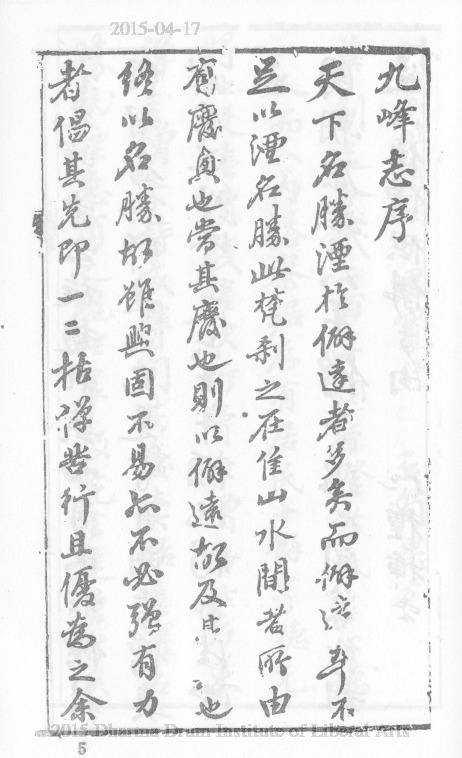 2015-04-17
九峰志序
天下名勝湮於僻遠者多矣而僻遠卒不
足以湮名勝此梵剎之在佳山水間者所由
有廢興也當其廢也則以僻遠故及其也
終以名勝故雖興固不易亦不必強有力
者倡其先即一二枯禪苦行且優為之余
2015 Dharma Drum Institute of Liberal Arts
5